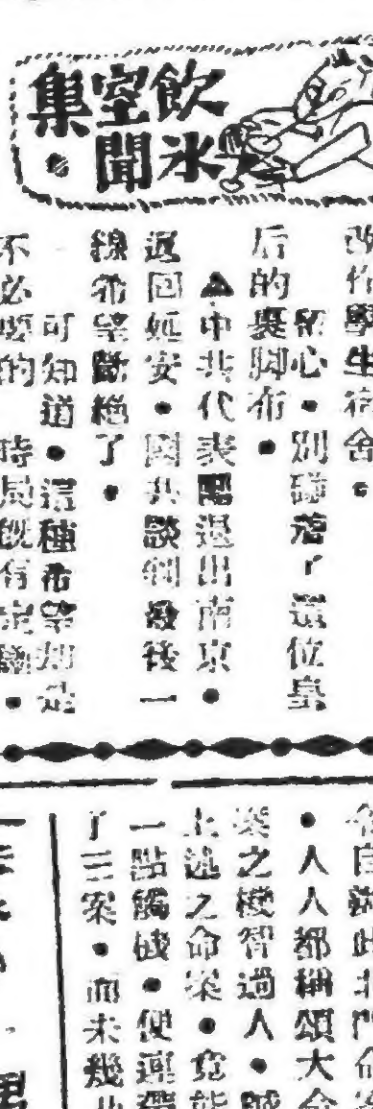 飲冰室聞集
改作學生宿舍。
留心。別碰落了這位皇
后的裹脚布。
▲中共代表團退出南京。
返回延安。國共談判最後一
線希望斷絕了。
可知道。這種希望却是
不必要的 時局既有定
人人都稱頌大
案之機智過人。誠
上述之命案。竟能
一點觸機。便連帶
了三案。而未幾